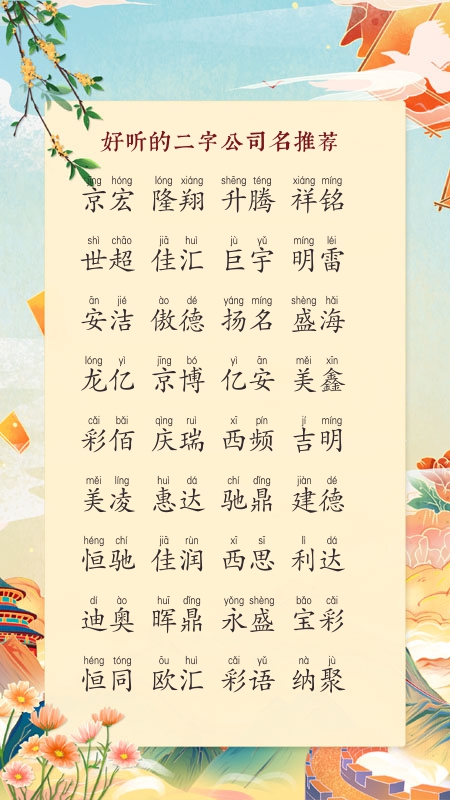 好听的二字公司名推荐
jīng hóng lóng xiáng shēng téng xiáng míng
京宏 隆翔 升腾 祥铭
shì chāo jiā huì jù yǔ míng léi
世超 佳汇 巨宇 明雷
ān jié ào dé yáng míng shèng hǎi
安洁 傲德 扬名 盛海
lóng yì jīng bó yì ān měi xīn
龙亿 京博 亿安 美鑫
cǎi bǎi qìng ruì xī pín jí míng
彩佰 庆瑞 西频 吉明
měi líng huì dá chí dǐng jiàn dé
美凌 惠达 驰鼎 建德
héng chí jiā rùn xī sī lì dá
恒驰 佳润 西思 利达
dí ào huī dǐng yǒng shèng bǎo cǎi
迪奥 晖鼎 永盛 宝彩
héng tóng ōu huì cǎi yǔ nà jù
恒同 欧汇 彩语 纳聚